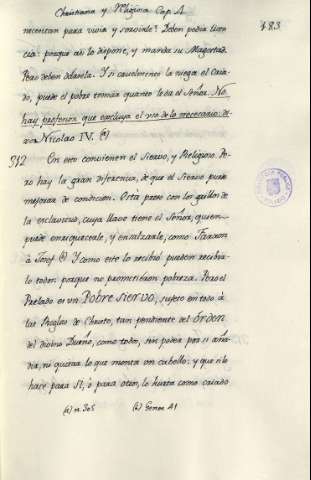 Christiana y Religiosa Cap. 4.
483
necesitan para vivir y servirle? Deben pedir licen
cia: porque asi lo dispone, y manda su Magestad.
Pero deben darsela. Y si cruelmente la niega el Cria
do, puede el pobre tomar quanto le dá el Señor. No
hay profesion que excluya el uso de lo necesario: de
cia Nicolao IV. (a)
312 En esto convienen el Siervo, y Religioso. Pe
ro hay la gran diferencia, de que el Siervo puede
mejorar de condicion. Está preso con los grillos de
la esclavitud, cuya llave tiene el Señor, quien
puede enriquecerle, y ensalzarle, como Faraon
á Josef. (b) Y como este lo recibió pueden recibir
lo todos: porque no prometieron pobreza. Pero el
Prelado es un Pobre siervo, sujeto en todo á
las Reglas de Christo, tan pendiente del Orden
del divino Dueño, como todos, sin poder por sí aña
dir, ni quitar lo que monta un cabello: y que si lo
hace para sí, ó para otro, lo hurta como criado
(a) n. 305 (b) Genes. 41